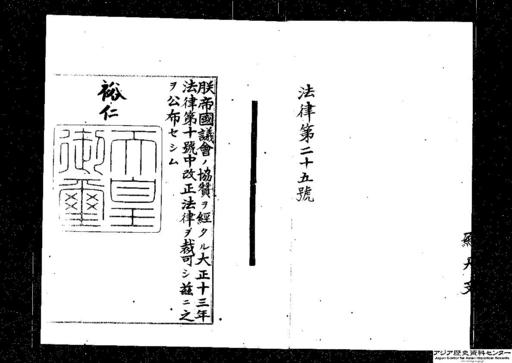 法律第二十五號
朕帝國議會ノ協贊ヲ經タル大正十三年
法律第十號中改正法律ヲ裁可シ茲ニ之
ヲ公布セシム
裕仁
天皇
御璽
アジア歴史資料センター
Japan Center for Asian Historical Records